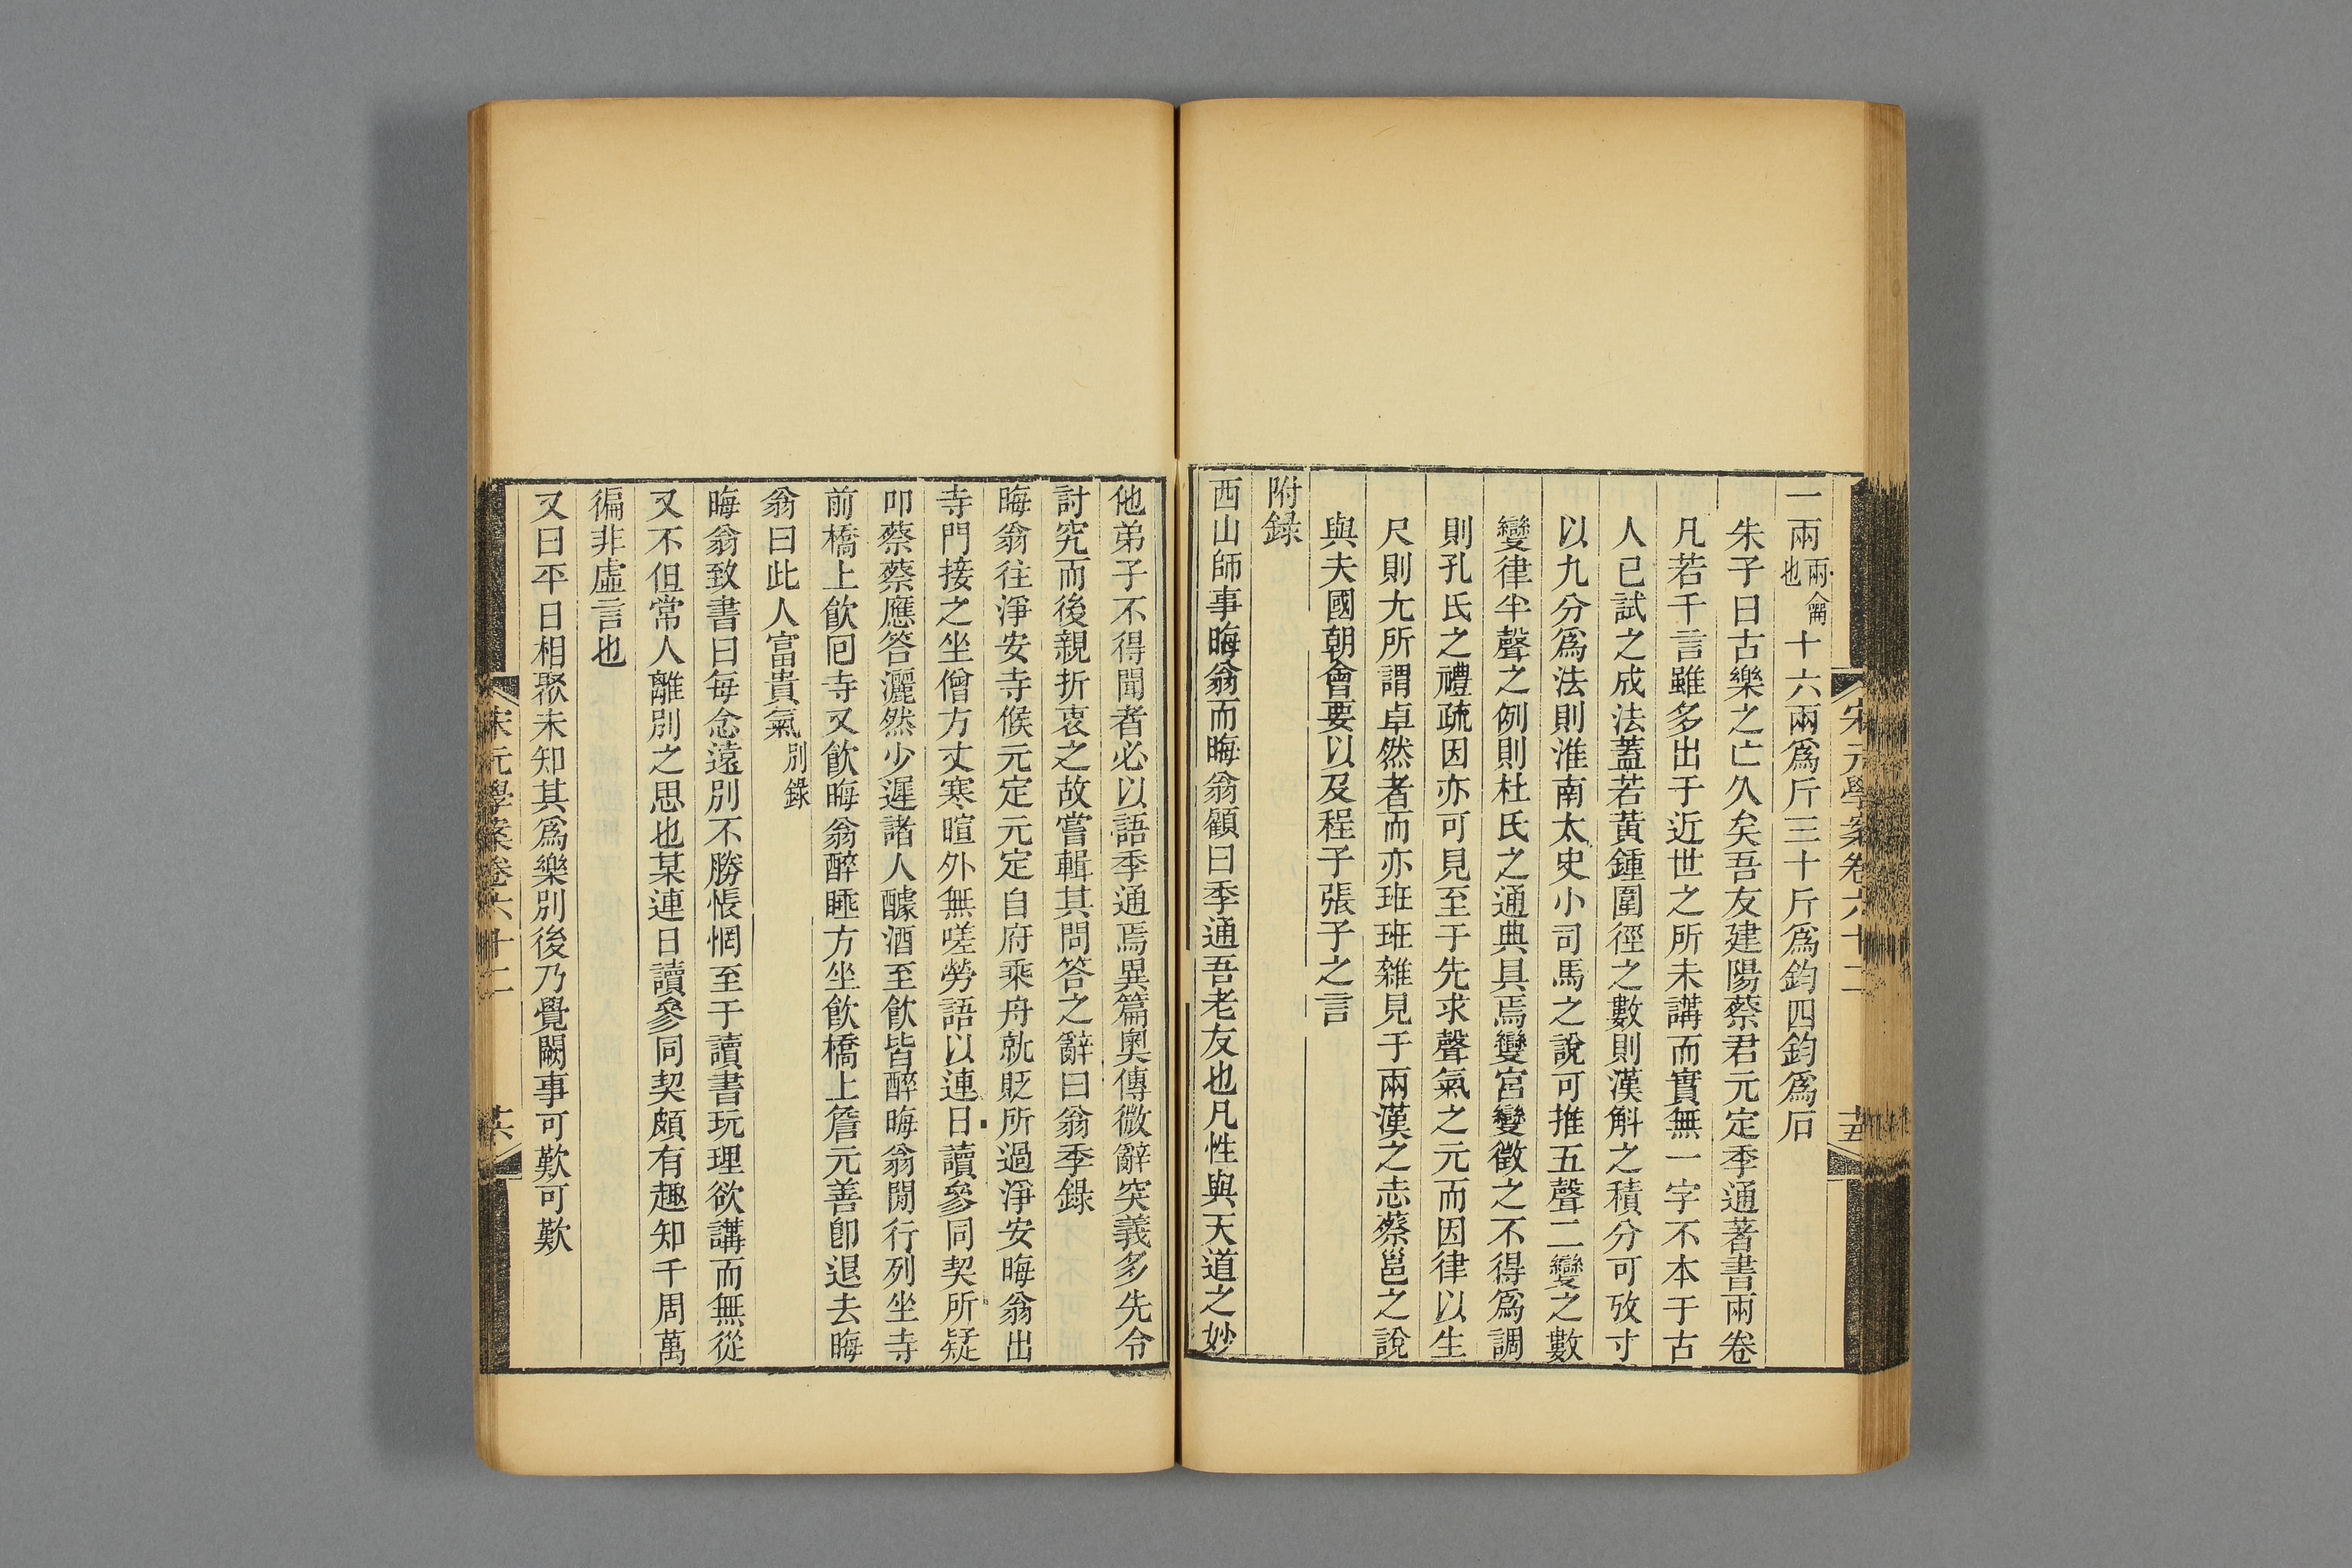 宋元學案卷六十二
十五
一兩兩龠也十六兩爲斤三十斤爲鈞四鈞爲石
朱子曰古樂之亡久矣吾友建陽蔡君元定季通著書兩卷
凡若千言雖多出于近世之所未講而實無一字不本于古
人已試之成法蓋若黃鍾圍徑之數則漢斛之積分可攷寸
以九分爲法則淮南太史小司馬之說可推五聲二變之數
變律半聲之例則杜氏之通典具焉變宮變徵之不得爲調
則孔氏之禮疏因亦可見至于先求聲氣之元而因律以生
尺則尢所謂卓然者而亦班班雜見于兩漢之志蔡邕之說
與夫國朝會要以及程子張子之言
附錄
西山師事晦翁而晦翁顧曰季通吾老友也凡性與天道之妙
他弟子不得聞者必以語季通焉異篇奧傳微辭突義多先令
討究而後親折衷之故嘗輯其問答之辭曰翁季錄
晦翁往淨安寺候元定元定自府乘舟就貶所過淨安晦翁出
寺門接之坐僧方丈寒暄外無嗟勞語以連日讀參同契所疑
叩蔡蔡應答灑然少遲諸人醵酒至飲皆醉晦翁閒行列坐寺
前橋上飲回寺又飲晦翁醉睡方坐飲橋上詹元善卽退去晦
翁曰此人富貴氣別錄
晦翁致書曰每念遠別不勝悵惘至于讀書玩理欲講而無從
又不但常人離別之思也某連日讀參同契頗有趣知千周萬
徧非虛言也
又曰平日相聚未知其爲樂別後乃覺闕事可歎可歎
宋元學案卷六十二